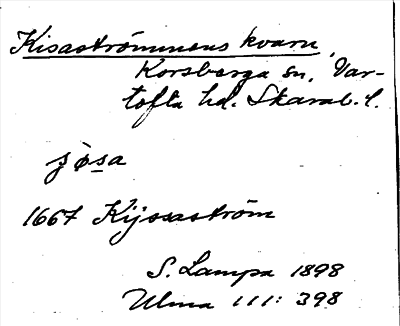 Kisaströmmens kvarn,
Korsberga sn, Var-
tofta hd. Skarab. l.
jösa
1667 Kijosaström
S. Lampa 1898
Ulma 111: 398